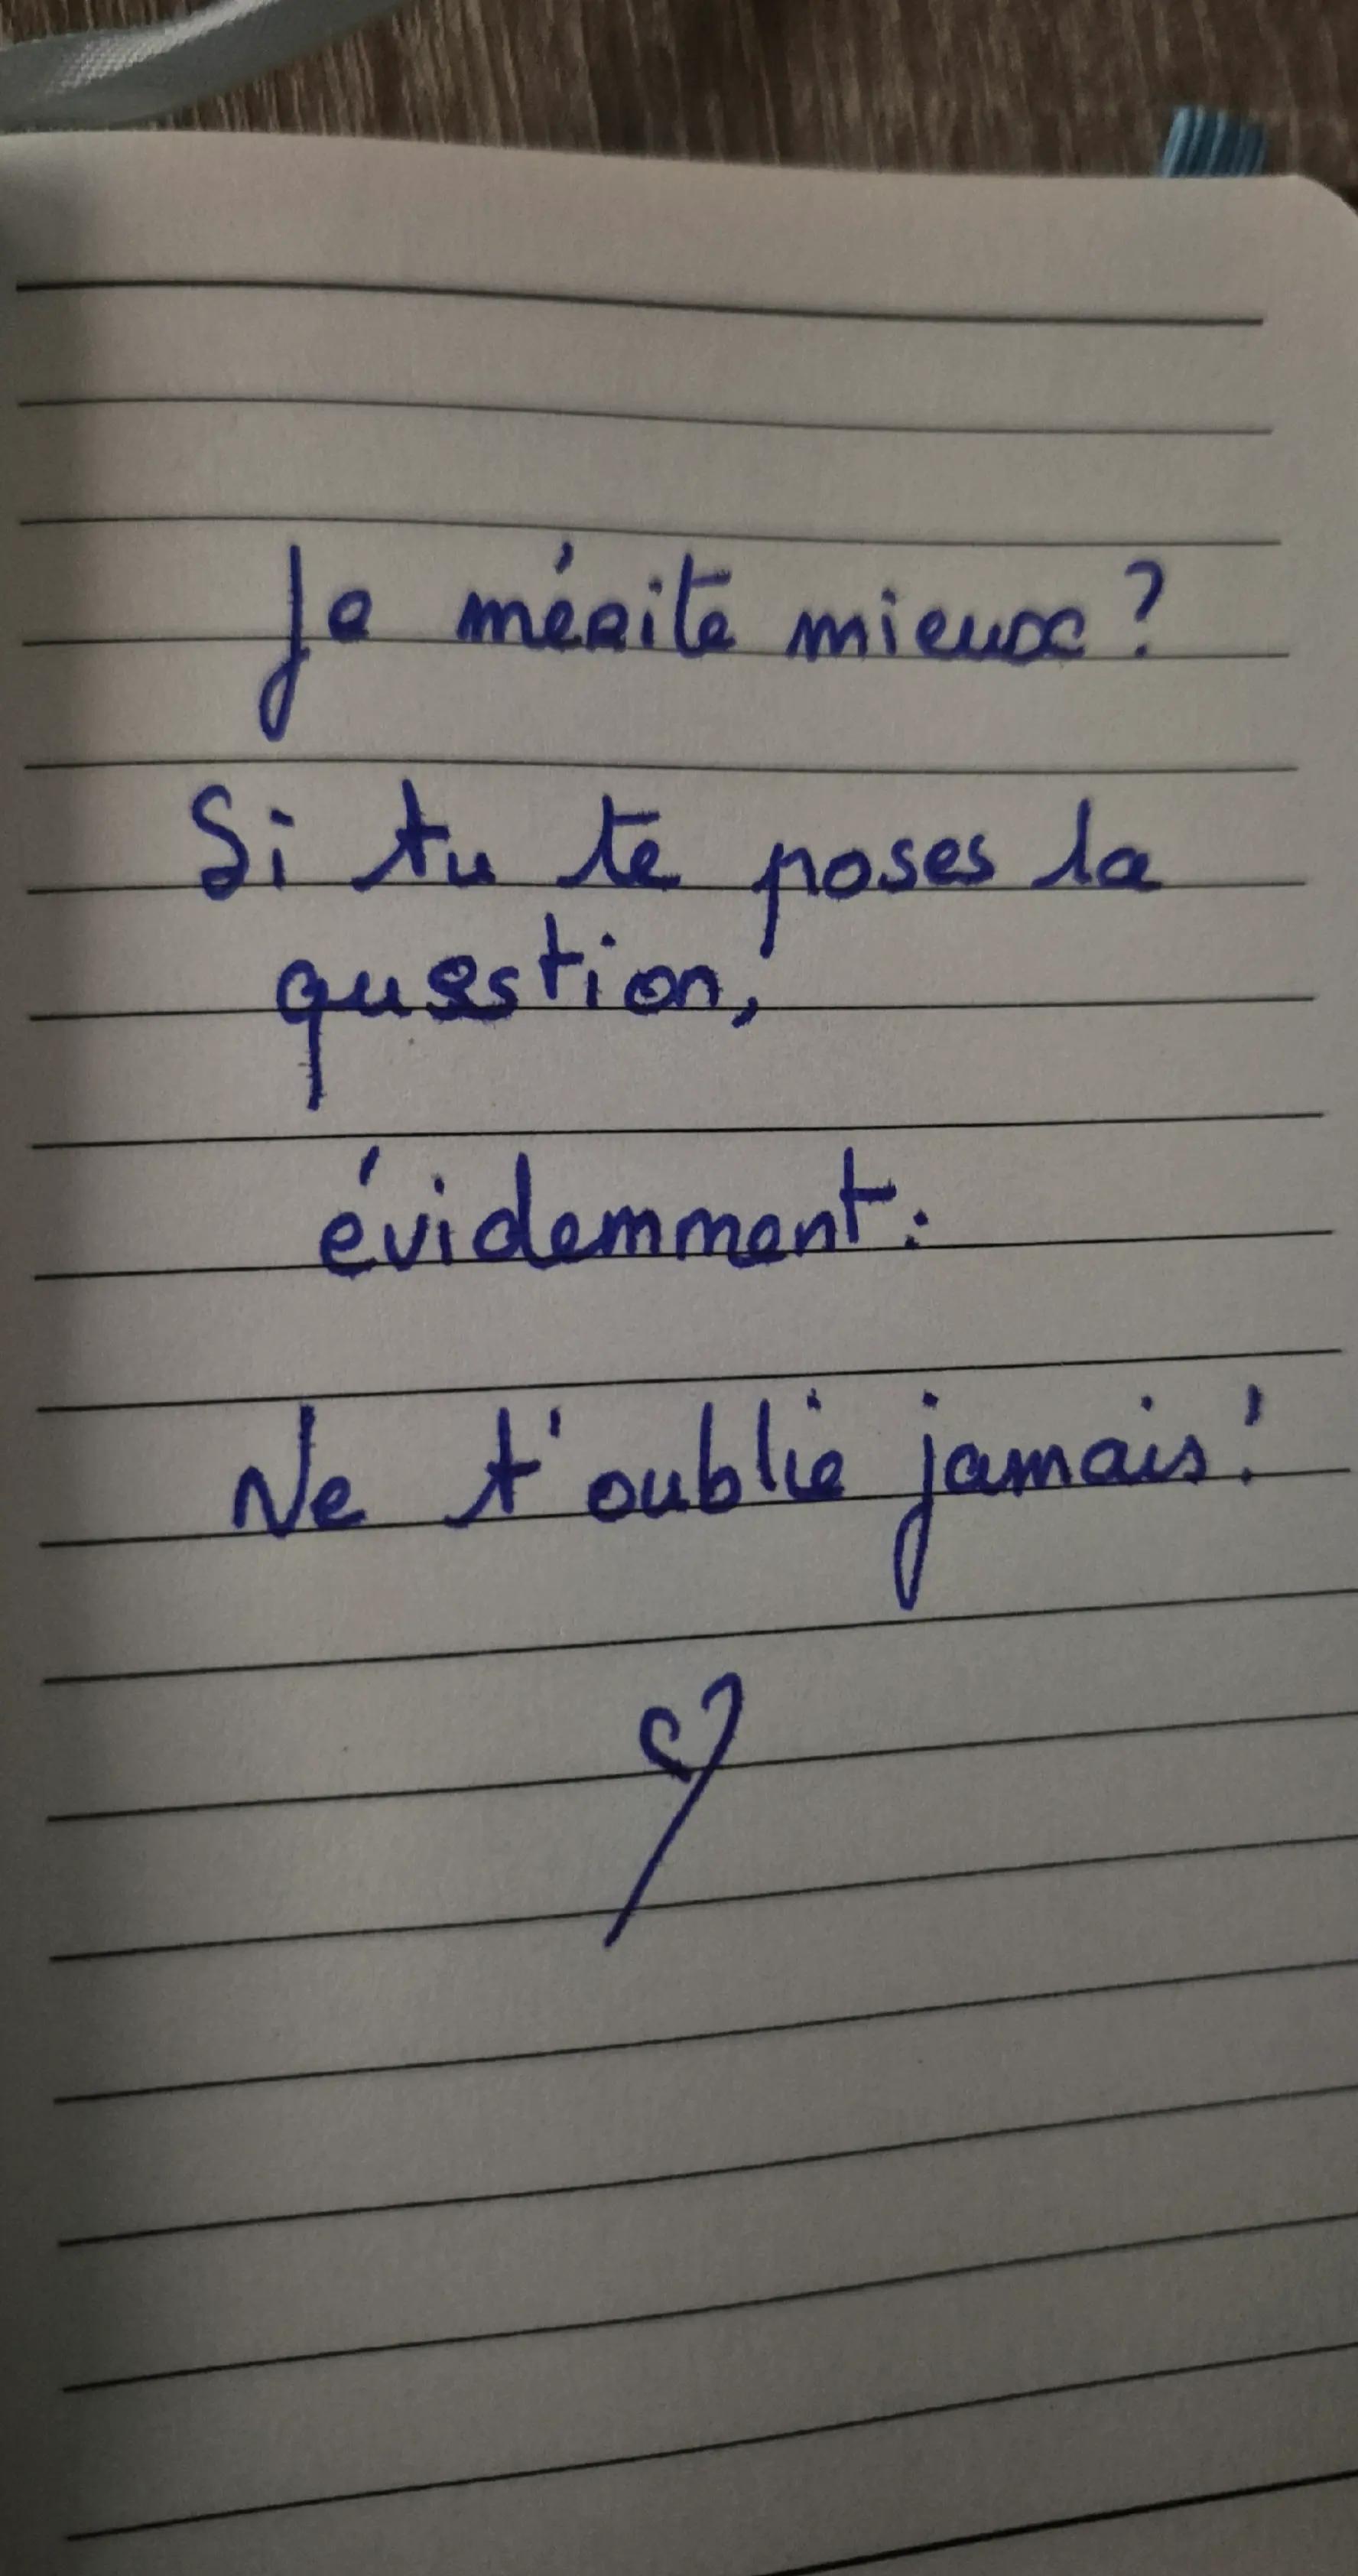 Je mérite mieux ?
Si tu te poses la
question,
évidemment :
Ne t'oublie jamais !